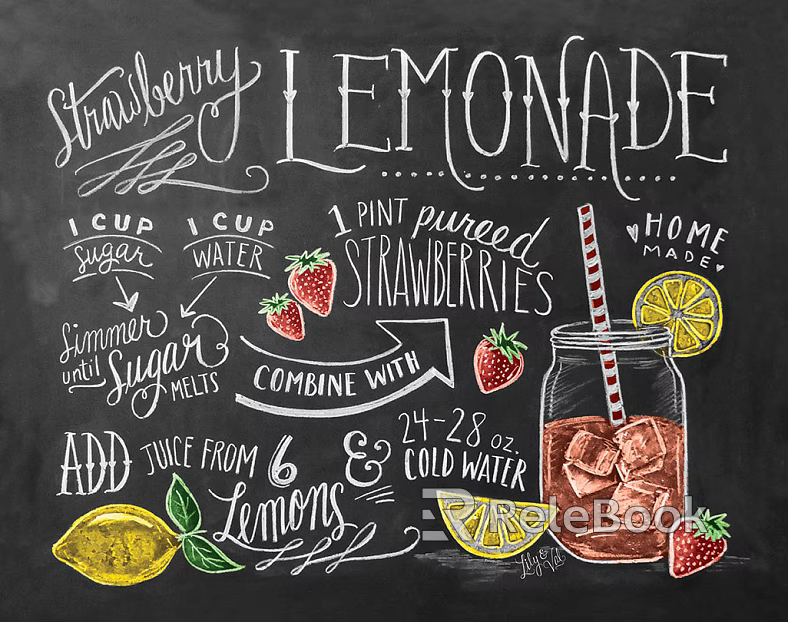 Strawberry LEMONADE
1 CUP
sugar
1 CUP
WATER
1 PINT pureed
STRAWBERRIES
HOME
MADE
Simmer
until Sugar
MELTS
COMBINE WITH
ADD JUICE FROM 6
Lemons
& 24-28 oz.
COLD WATER
ReleBook
Lily & Val